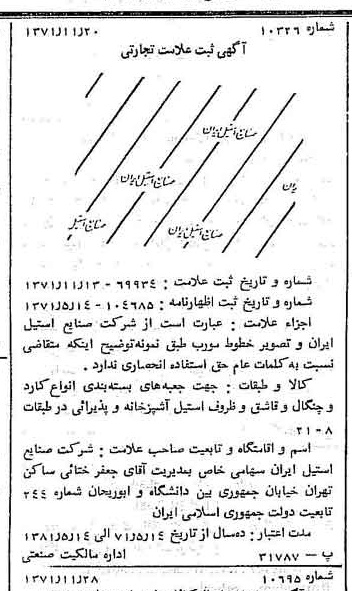 شماره ۱۰۳۲۶ ۱۳۷۱/۱۱/۲۰
آگهی ثبت علامت تجارتی
صنایع استیل ایران
صنایع استیل ایران
ایران
صنایع استیل
صنایع استیل ایران
شماره و تاریخ ثبت علامت : ۶۹۹۳۴ - ۱۳۷۱/۱۱/۱۳
شماره و تاریخ ثبت اظهارنامه : ۱۰۴۶۸۵ - ۱۳۷۱/۵/۱۴
اجزاء علامت : عبارت است از شرکت صنایع استیل
ایران و تصویر خطوط مورب طبق نمونه‌توضیح اینکه متقاضی
نسبت به کلمات عام حق استفاده انحصاری ندارد .
کالا و طبقات : جهت جعبه‌های بسته‌بندی انواع کارد
و چنگال و قاشق و ظروف استیل آشپزخانه و پذیرائی در طبقات
۸ - ۲۱
اسم و اقامتگاه و تابعیت صاحب علامت : شرکت صنایع
استیل ایران سهامی خاص بمدیریت آقای جعفر ختائی ساکن
تهران خیابان جمهوری بین دانشگاه و ابوریحان شماره ۲۴۴
تابعیت دولت جمهوری اسلامی ایران
مدت اعتبار : ده‌سال از تاریخ ۷۱/۵/۱۴ الی ۱۳۸۱/۵/۱۴
پ — ۳۱۷۸۷ اداره مالکیت صنعتی
شماره ۱۰۶۹۵ ۱۳۷۱/۱۱/۲۸